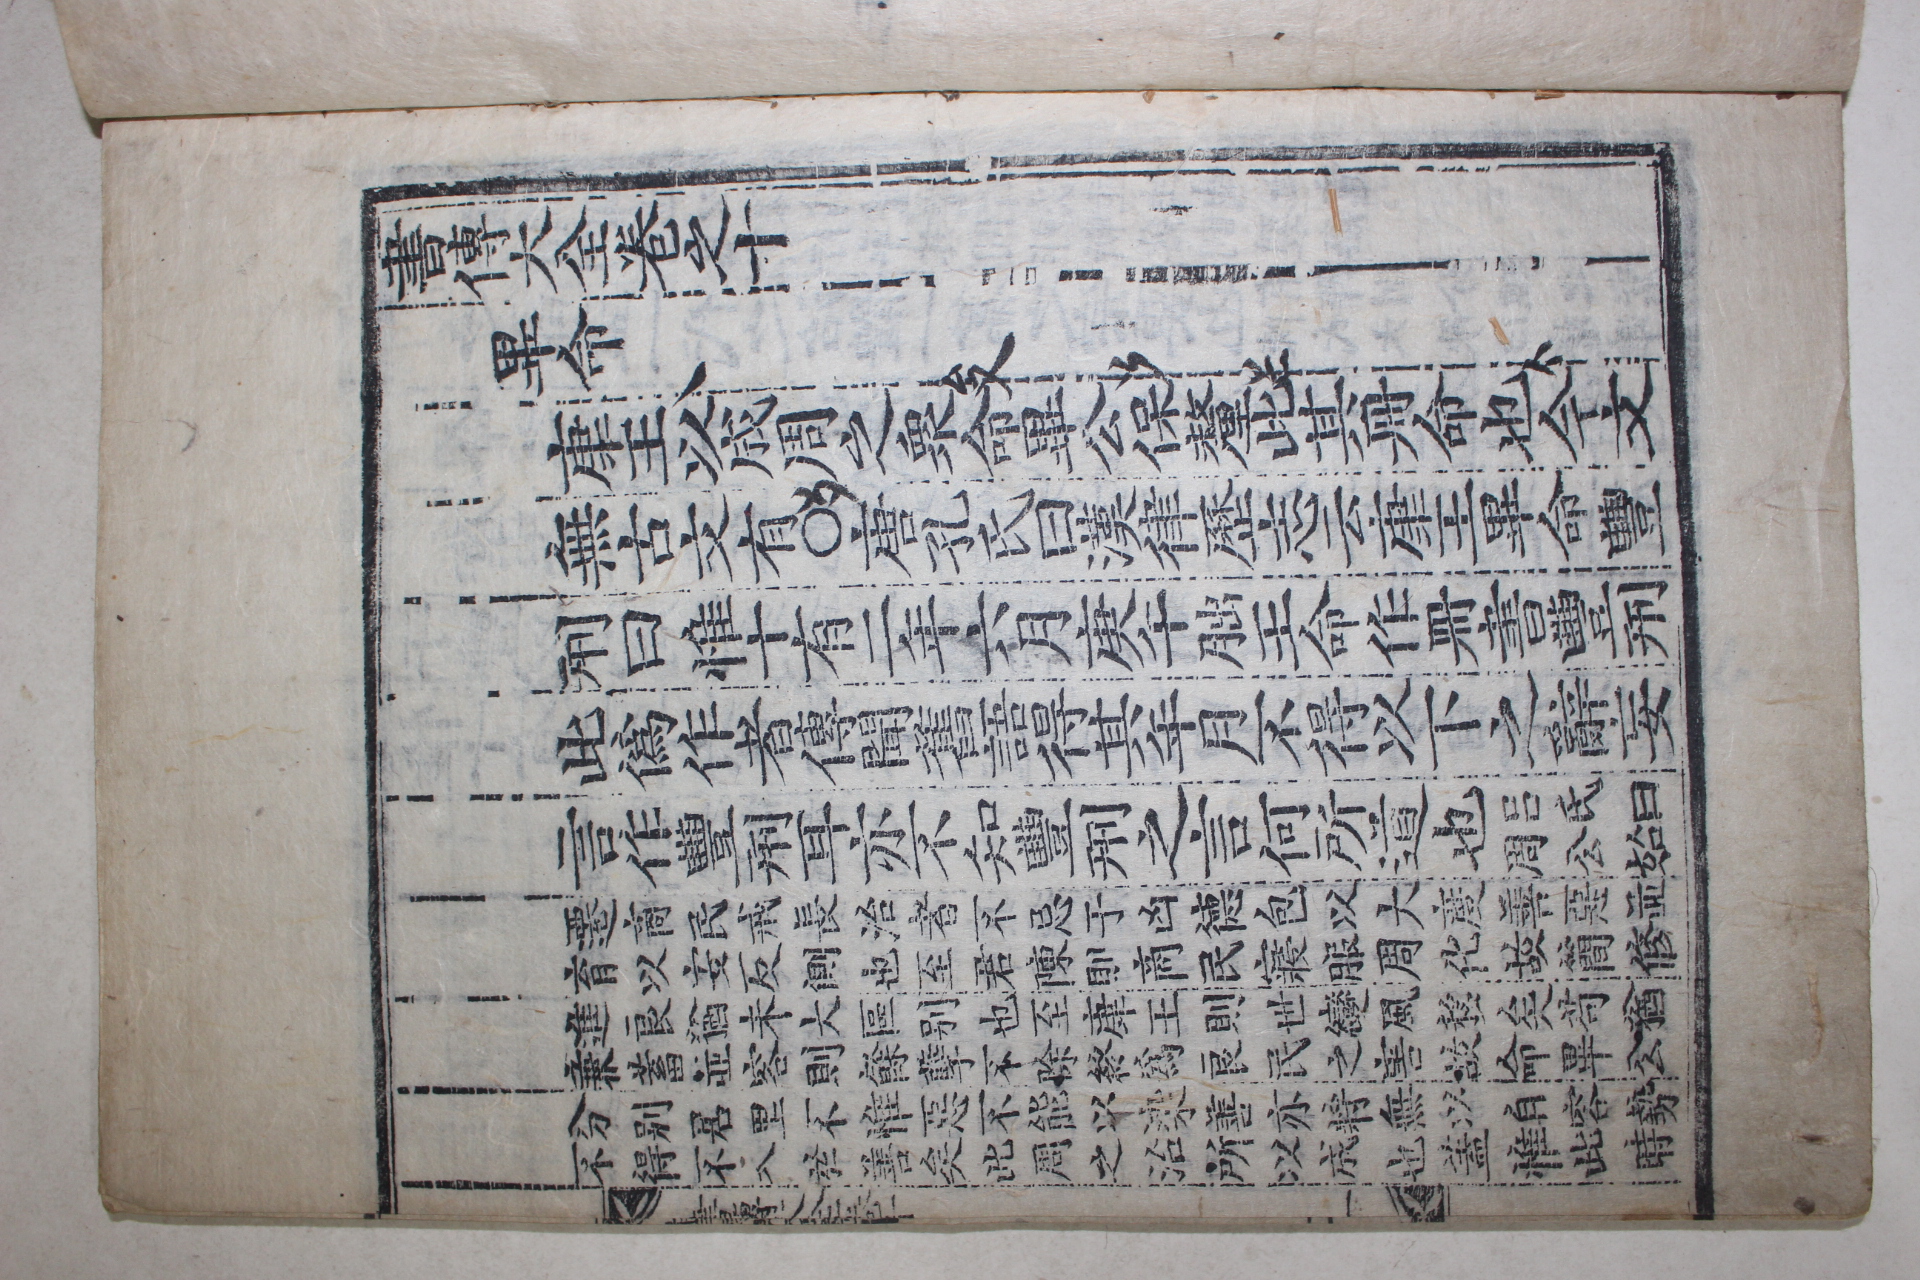 書傳大全卷之十
畢命
康王以成周之衆命畢公保釐此其冊命也今文
無古文有○唐孔氏曰漢律歷志云康王畢命豐
刑曰惟十有二年六月庚午朏王命作冊書豐刑
此僞作者傳聞舊語得其年月不得以下之辭妄
言作豐刑耳亦不知豐刑之言何所道也
呂氏曰
周公始
遷商民戒長治者不忌于凶德包以大度善惡並
育以安反側也至君陳則商民寢服周化故簡修
進良猶未大區别也至康王則世變風移矣苟猶
兼蓄並容則餘孽不除終爲良民之害故命畢公
分别居里不惟惡不能以染善亦將無以自容勢
不得不入於善矣此周之治所以成也蓋惟此時